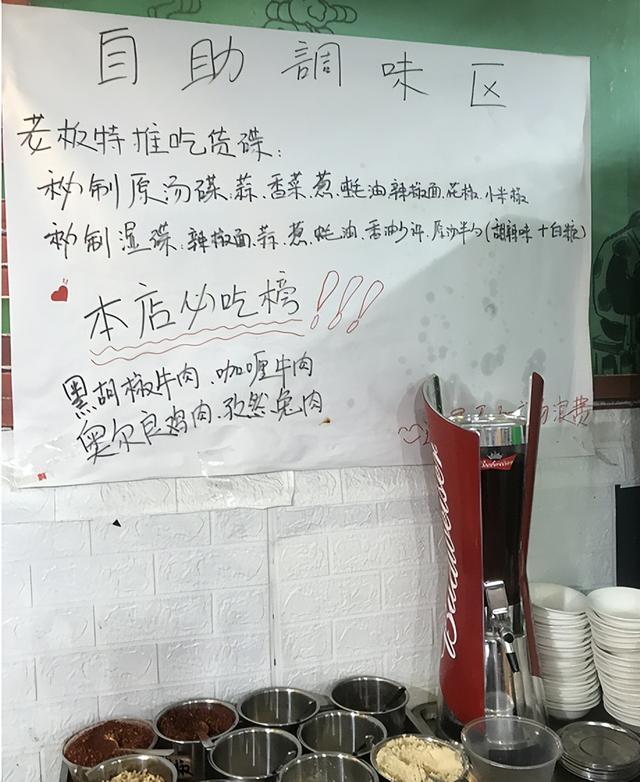 自助調味区
老板特推吃货碟:
秘制原汤碟、蒜、香菜、葱、蚝油、辣椒面、花椒、小米椒
秘制湿碟:辣椒面、蒜、葱、蚝油、香油少许、原汤半勺(胡辣味+白糖)
本店必吃榜!!!
黑胡椒牛肉、咖喱牛肉
奥尔良鸡肉、孜然兔肉
浪费
Budweiser
Budweiser